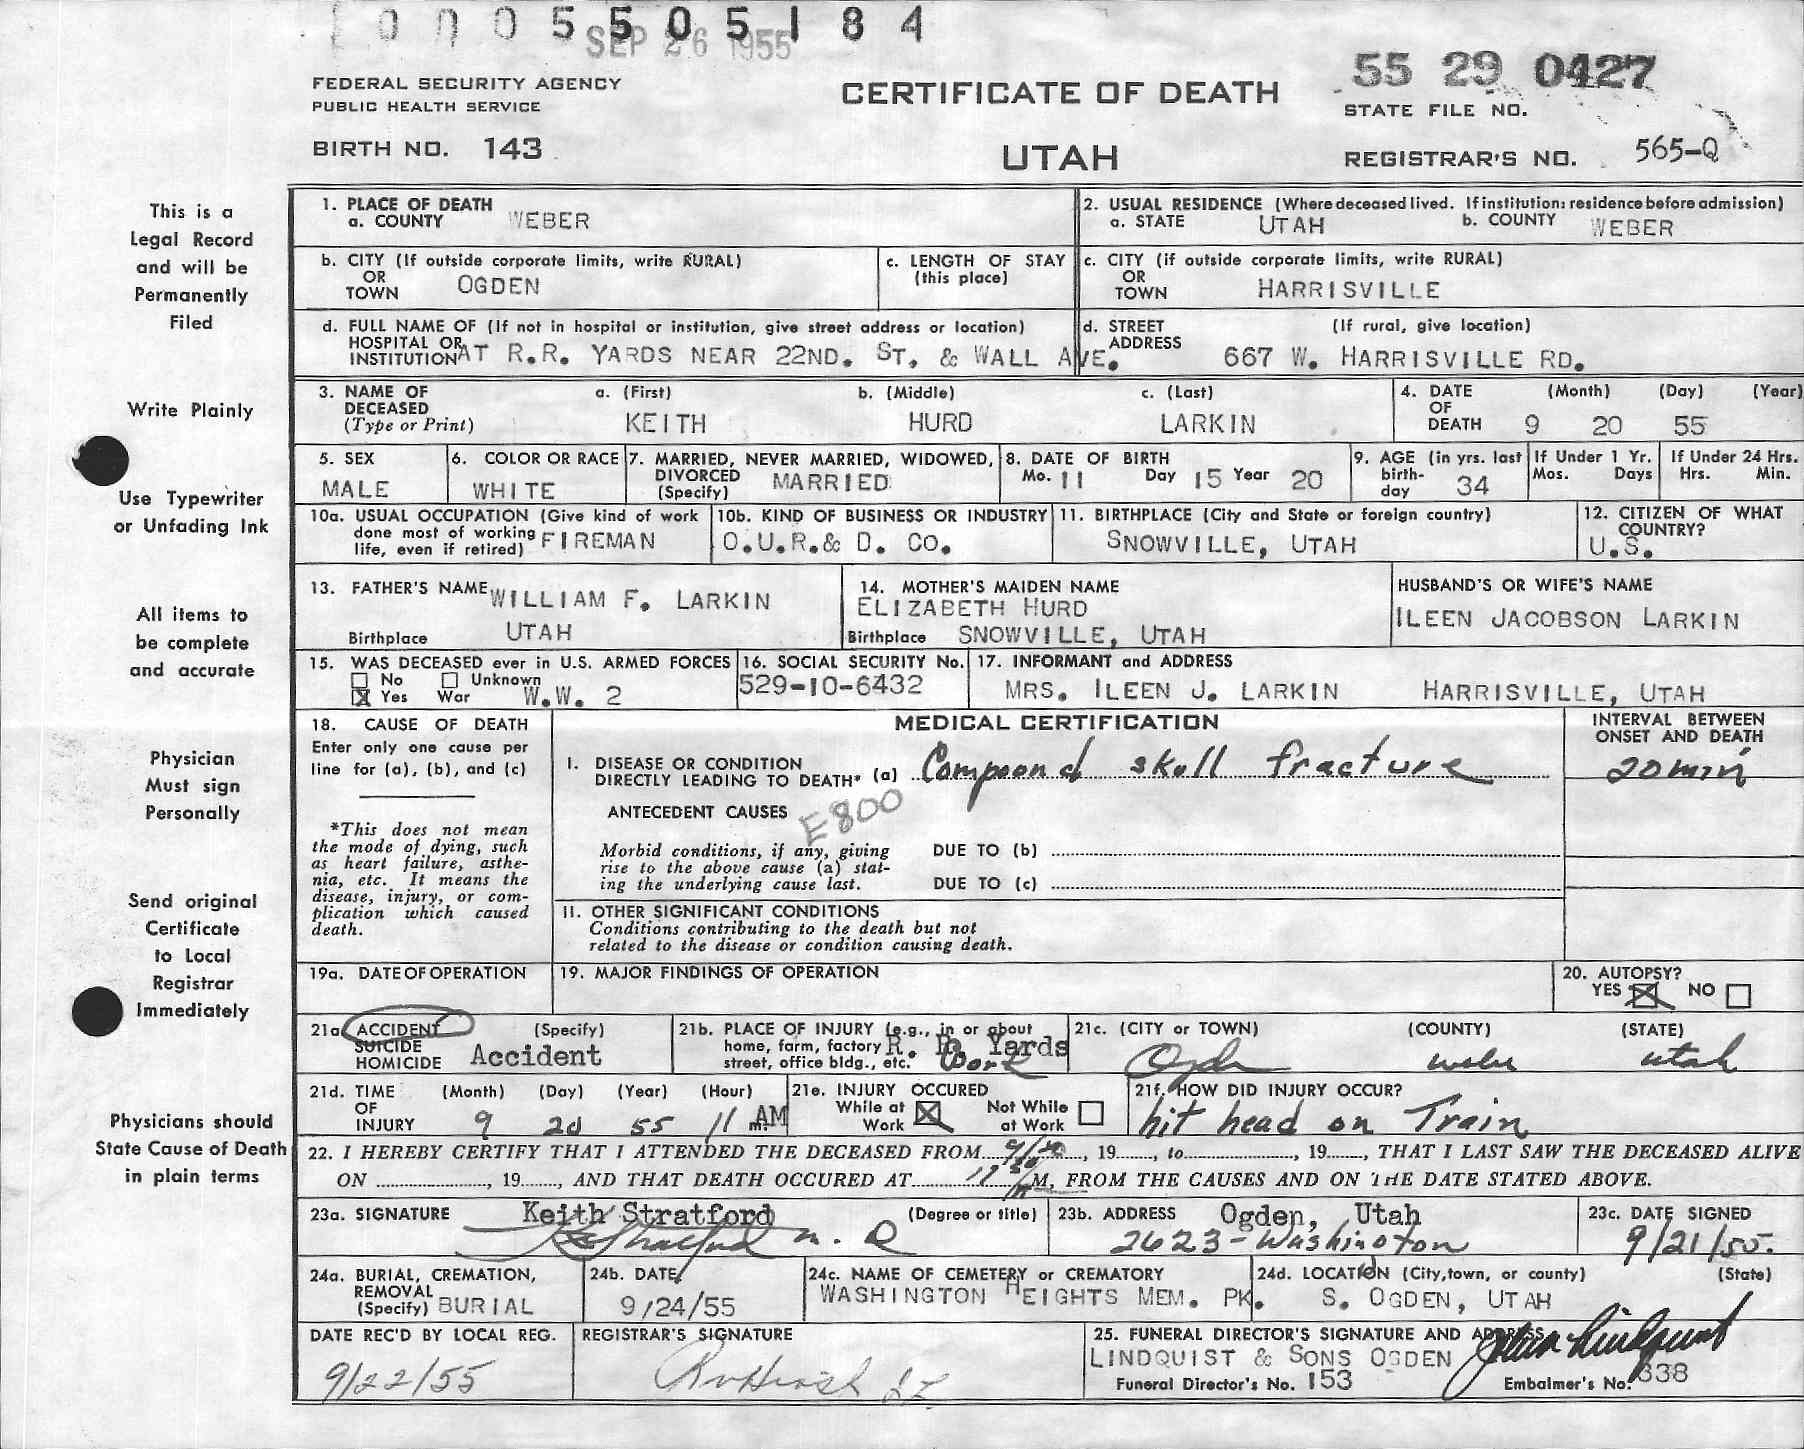 0 0 0 5 5 0 5 1 8 4
SEP 26 1955
55 29 0427
FEDERAL SECURITY AGENCY
PUBLIC HEALTH SERVICE
CERTIFICATE OF DEATH
STATE FILE NO.
BIRTH NO. 143
UTAH
REGISTRAR'S NO. 565-Q
This is a
Legal Record
and will be
Permanently
Filed
Write Plainly
Use Typewriter
or Unfading Ink
All items to
be complete
and accurate
Physician
Must sign
Personally
Send original
Certificate
to Local
Registrar
Immediately
Physicians should
State Cause of Death
in plain terms
1. PLACE OF DEATH
a. COUNTY WEBER
2. USUAL RESIDENCE (Where deceased lived. If institution: residence before admission)
a. STATE UTAH b. COUNTY WEBER
b. CITY (If outside corporate limits, write RURAL)
OR
TOWN OGDEN
c. LENGTH OF STAY
(this place)
c. CITY (if outside corporate limits, write RURAL)
OR
TOWN HARRISVILLE
d. FULL NAME OF (If not in hospital or institution, give street address or location)
HOSPITAL OR
INSTITUTION AT R.R. YARDS NEAR 22ND. ST. & WALL AVE.
d. STREET (If rural, give location)
ADDRESS 667 W. HARRISVILLE RD.
3. NAME OF a. (First) b. (Middle) c. (Last)
DECEASED
(Type or Print) KEITH HURD LARKIN
4. DATE (Month) (Day) (Year)
OF
DEATH 9 20 55
5. SEX
MALE
6. COLOR OR RACE
WHITE
7. MARRIED, NEVER MARRIED, WIDOWED,
DIVORCED MARRIED
(Specify)
8. DATE OF BIRTH
Mo. 11 Day 15 Year 20
9. AGE (in yrs. last
birth-
day 34
If Under 1 Yr.
Mos. Days
If Under 24 Hrs.
Hrs. Min.
10a. USUAL OCCUPATION (Give kind of work
done most of working
life, even if retired) FIREMAN
10b. KIND OF BUSINESS OR INDUSTRY
O.U.R.& D. CO.
11. BIRTHPLACE (City and State or foreign country)
SNOWVILLE, UTAH
12. CITIZEN OF WHAT
COUNTRY?
U.S.
13. FATHER'S NAME WILLIAM F. LARKIN
Birthplace UTAH
14. MOTHER'S MAIDEN NAME
ELIZABETH HURD
Birthplace SNOWVILLE, UTAH
HUSBAND'S OR WIFE'S NAME
ILEEN JACOBSON LARKIN
15. WAS DECEASED ever in U.S. ARMED FORCES
No Unknown
X Yes War W.W. 2
16. SOCIAL SECURITY No.
529-10-6432
17. INFORMANT and ADDRESS
MRS. ILEEN J. LARKIN HARRISVILLE, UTAH
18. CAUSE OF DEATH
Enter only one cause per
line for (a), (b), and (c)
*This does not mean
the mode of dying, such
as heart failure, asthe-
nia, etc. It means the
disease, injury, or com-
plication which caused
death.
MEDICAL CERTIFICATION
I. DISEASE OR CONDITION
DIRECTLY LEADING TO DEATH* (a) Compound skull fracture
INTERVAL BETWEEN
ONSET AND DEATH
20 min
ANTECEDENT CAUSES
E800
Morbid conditions, if any, giving
rise to the above cause (a) stat-
ing the underlying cause last.
DUE TO (b)
DUE TO (c)
II. OTHER SIGNIFICANT CONDITIONS
Conditions contributing to the death but not
related to the disease or condition causing death.
19a. DATE OF OPERATION
19. MAJOR FINDINGS OF OPERATION
20. AUTOPSY?
YES X NO
21a. ACCIDENT (Specify)
SUICIDE
HOMICIDE Accident
21b. PLACE OF INJURY (e.g., in or about
home, farm, factory R. R. Yards
street, office bldg., etc.
21c. (CITY or TOWN) (COUNTY) (STATE)
Ogden Weber Utah
21d. TIME (Month) (Day) (Year) (Hour)
OF
INJURY 9 20 55 11 m. AM
21e. INJURY OCCURED
While at Work X Not While at Work
21f. HOW DID INJURY OCCUR?
hit head on Train
22. I HEREBY CERTIFY THAT I ATTENDED THE DECEASED FROM 9/20, 19, to, 19, THAT I LAST SAW THE DECEASED ALIVE
ON, 19, AND THAT DEATH OCCURED AT M, FROM THE CAUSES AND ON THE DATE STATED ABOVE.
23a. SIGNATURE Keith Stratford (Degree or title)
K Stratford M. D
23b. ADDRESS Ogden, Utah
2623 - Washington
23c. DATE SIGNED
9/21/55.
24a. BURIAL, CREMATION,
REMOVAL
(Specify) BURIAL
24b. DATE
9/24/55
24c. NAME OF CEMETERY or CREMATORY
WASHINGTON HEIGHTS MEM. PK.
24d. LOCATION (City, town, or county) (State)
S. OGDEN, UTAH
DATE REC'D BY LOCAL REG.
9/22/55
REGISTRAR'S SIGNATURE
25. FUNERAL DIRECTOR'S SIGNATURE AND ADDRESS
LINDQUIST & SONS OGDEN John Lindquist
Funeral Director's No. 153 Embalmer's No. 338